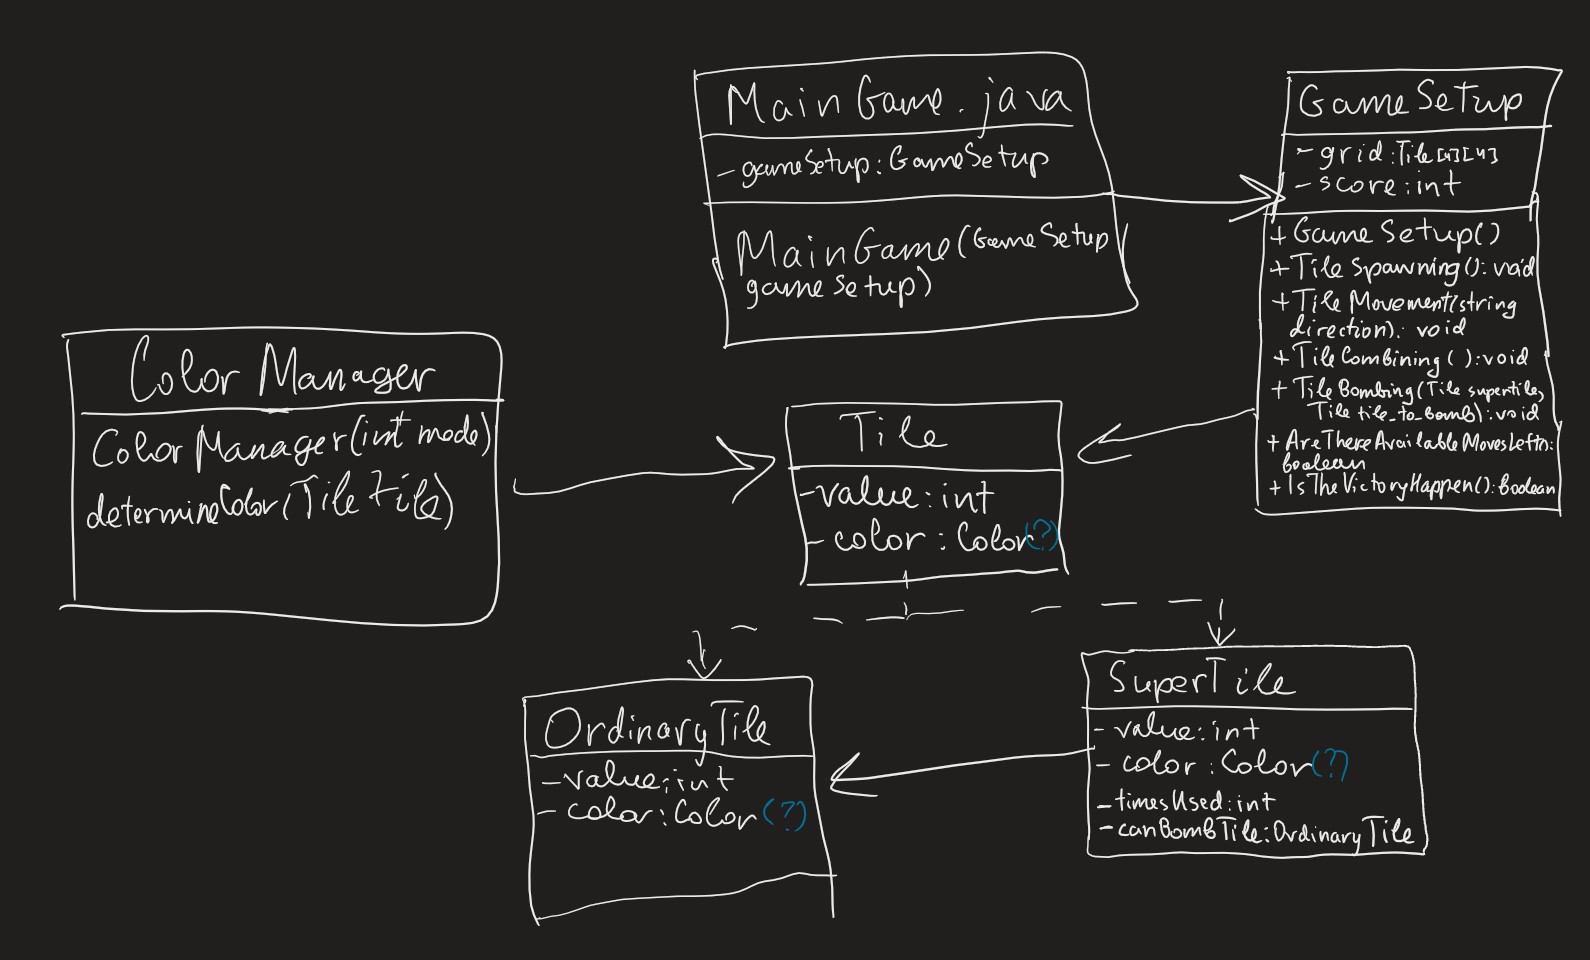 MainGame.java
- gameSetup: GameSetup
MainGame(GameSetup
gameSetup)
GameSetup
- grid: Tile[4][4]
- score: int
+ GameSetup()
+ TileSpawning(): void
+ TileMovement(string
direction): void
+ TileCombining(): void
+ TileBombing(Tile supertile,
Tile tile_to_bomb): void
+ AreThereAvailableMovesLeft():
boolean
+ IsTheVictoryHappen(): Boolean
Color Manager
ColorManager(int mode)
determineColor(Tile tile)
Tile
- value: int
- color: Color(?)
OrdinaryTile
- value: int
- color: Color (?)
SuperTile
- value: int
- color: Color(?)
- timesUsed: int
- canBombTile: OrdinaryTile